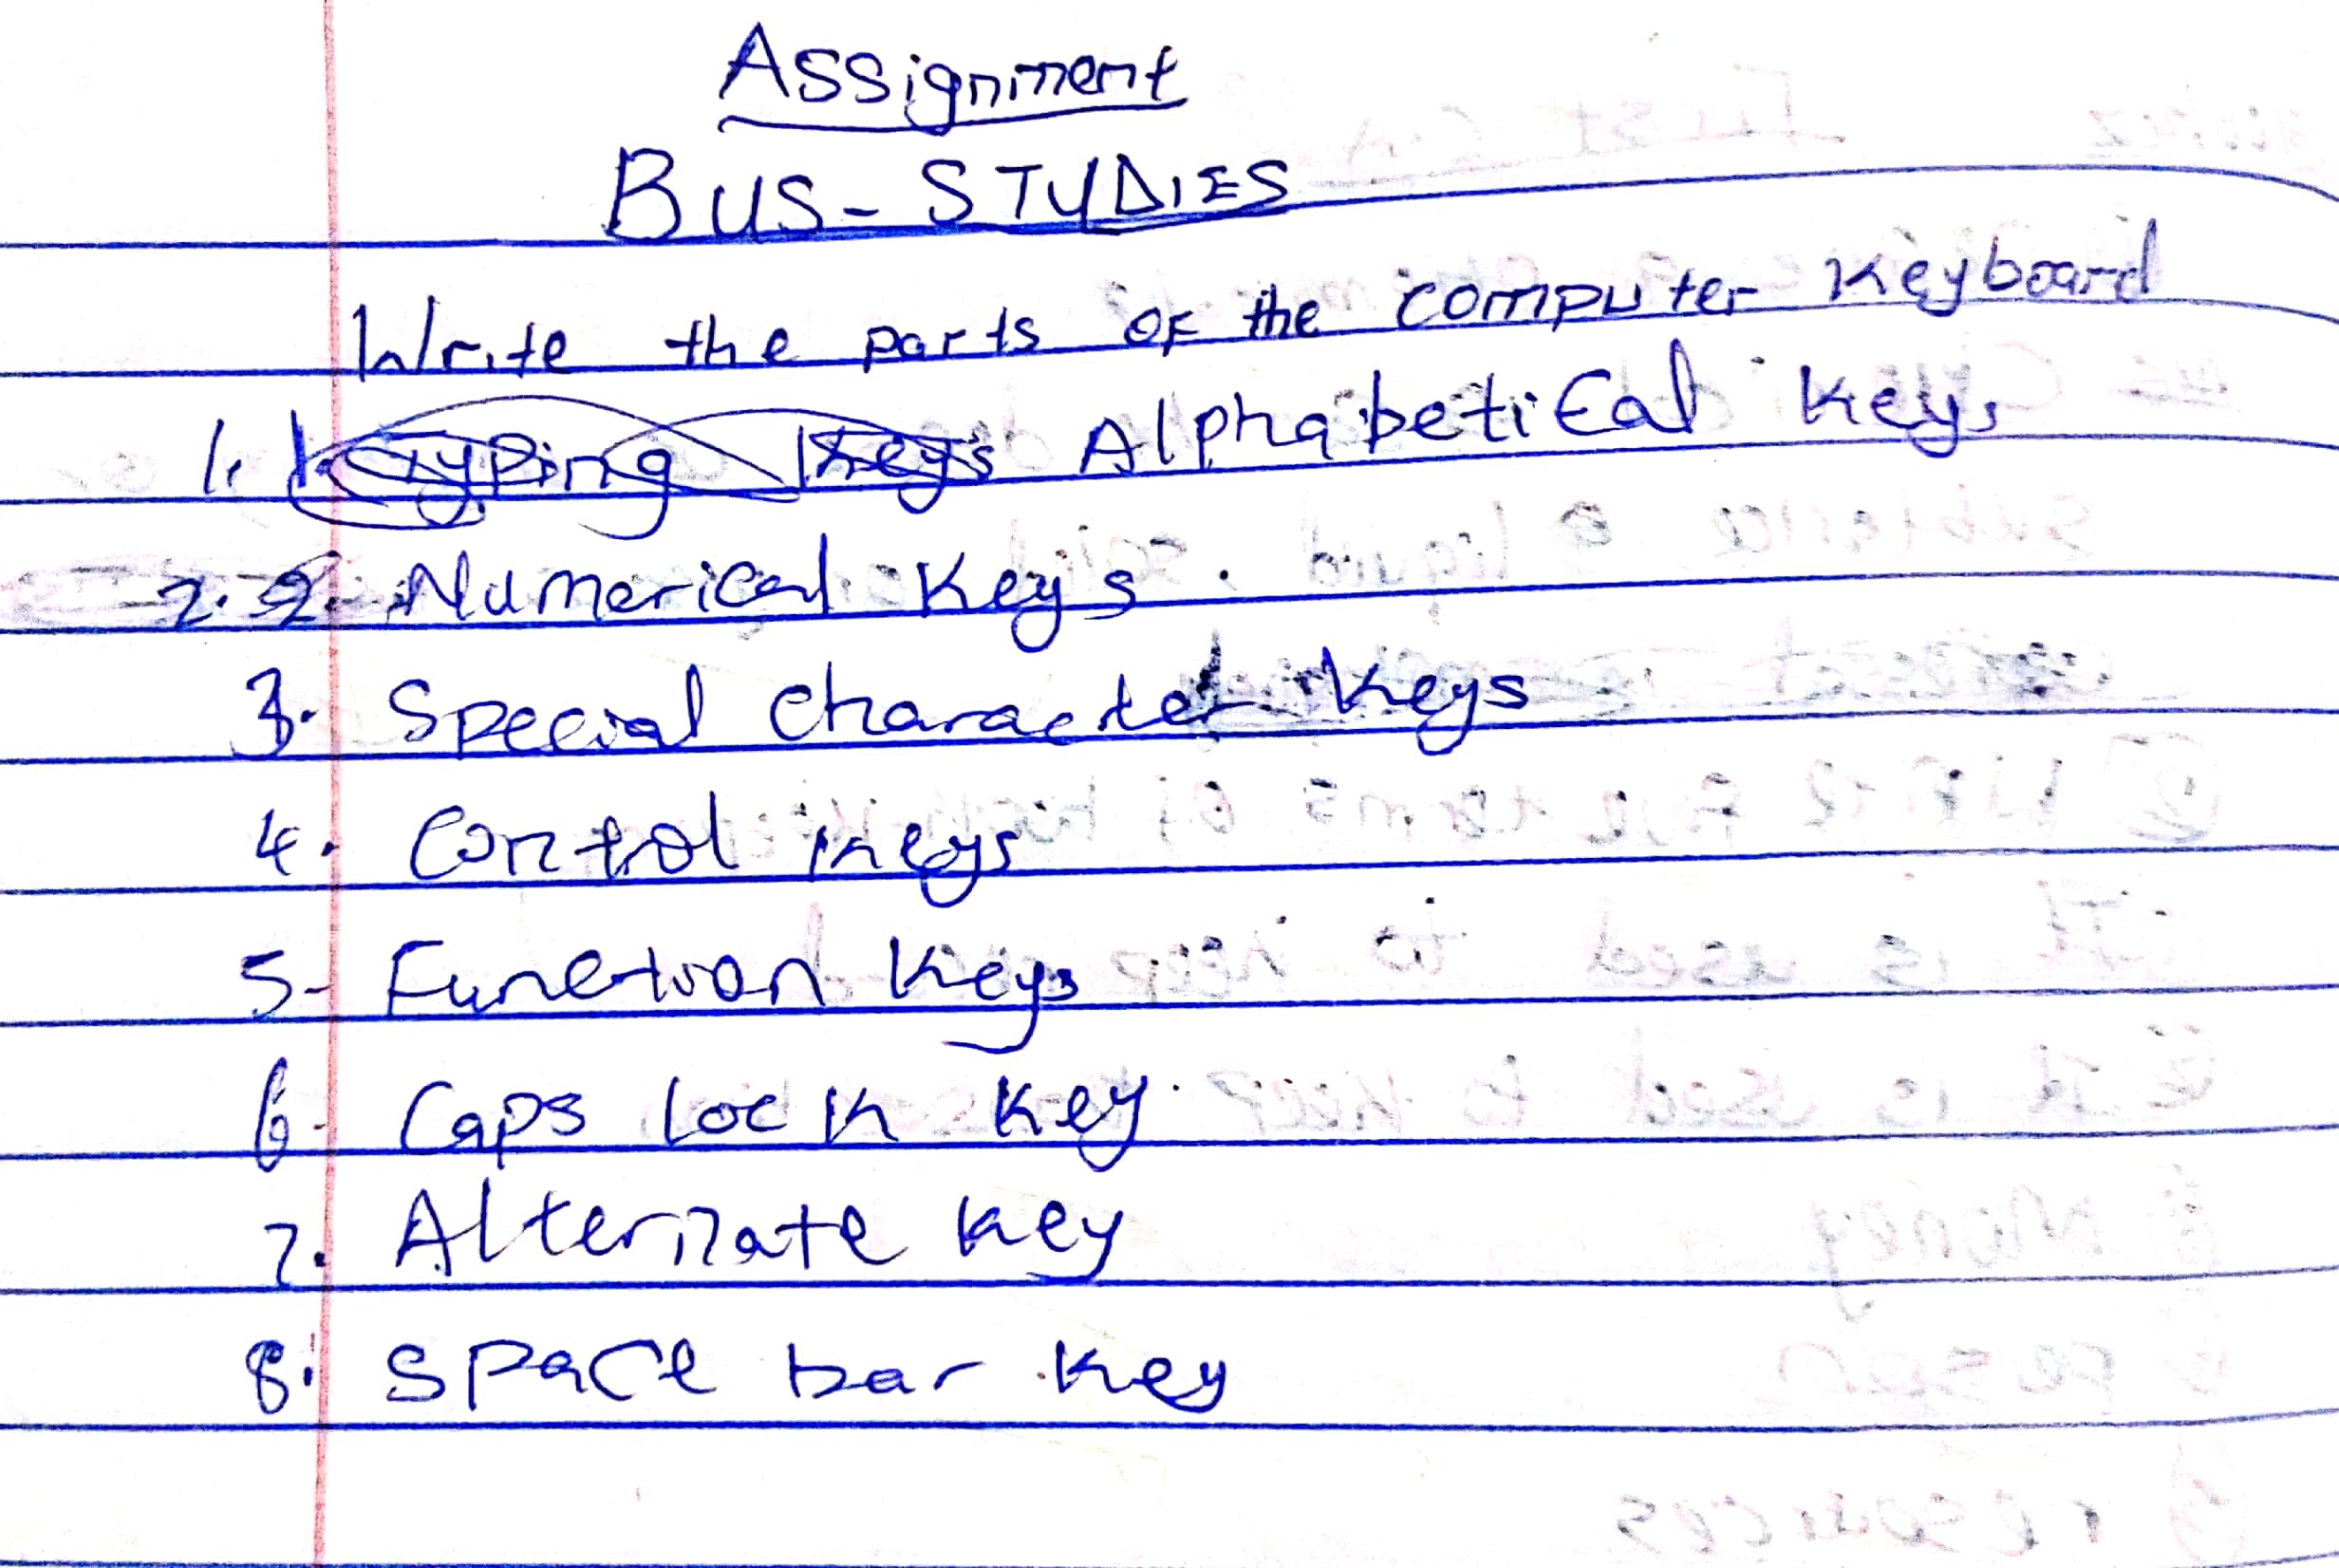 Assignment
BUS-STUDIES
Write the parts of the computer Keyboard
1. Keys Alphabetical Keys
2. 2. Numerical Keys.
3. Special character Keys
4. Control Keys
5- Function Keys
6- Caps lock Key.
7. Alternate Key
8. Space bar Key